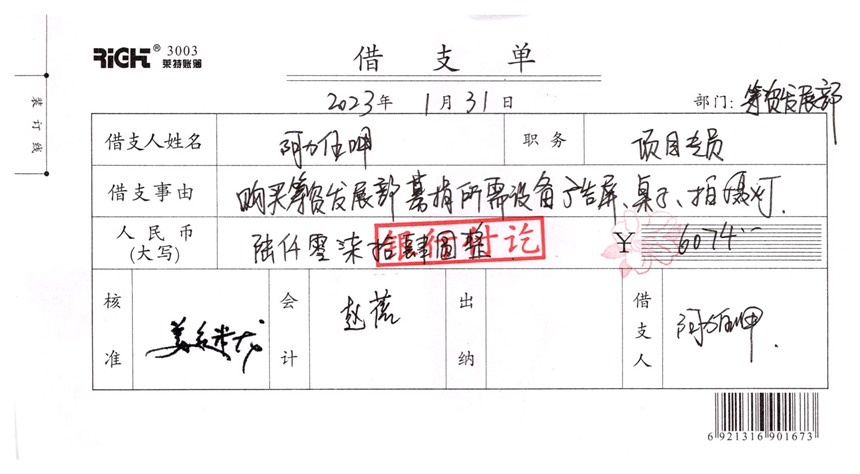 RiGHT® 3003
莱特账簿
借支单
2023年 1月31日
部门: 筹资发展部
装订线
借支人姓名 阿力伍呷 职务 项目专员
借支事由 购买筹资发展部募捐所需设备广告屏、桌子、拍摄灯.
人民币(大写) 陆仟零柒拾肆圆整 ¥ 6074.00
银行付讫
核准 会计 赵蓓 出纳 借支人 阿力伍呷.
6 921316 901673